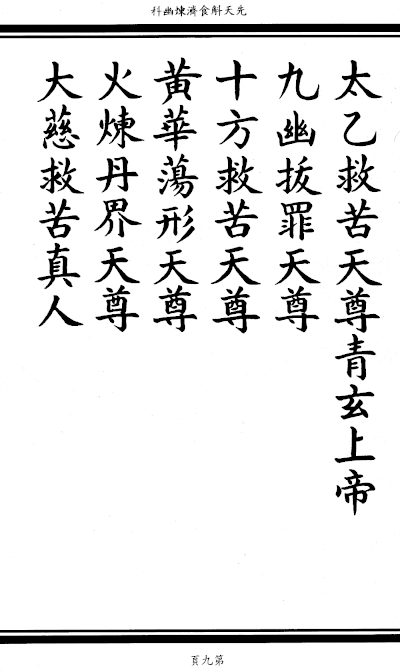 先天斛食濟煉幽科
太乙救苦天尊青玄上帝
九幽拔罪天尊
十方救苦天尊
黃華蕩形天尊
火煉丹界天尊
大慈救苦真人
第九頁